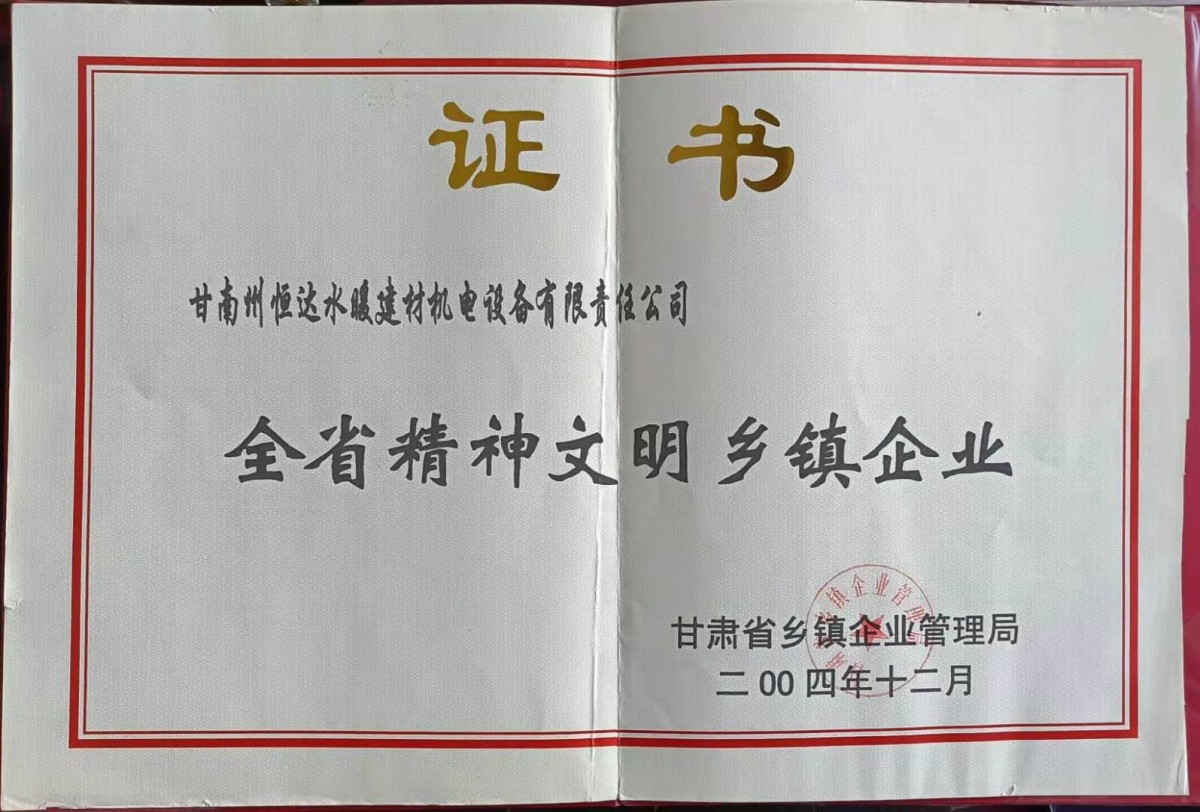 证书
甘南州恒达水暖建材机电设备有限责任公司
全省精神文明乡镇企业
甘肃省乡镇企业管理局
二00四年十二月
镇企业管理